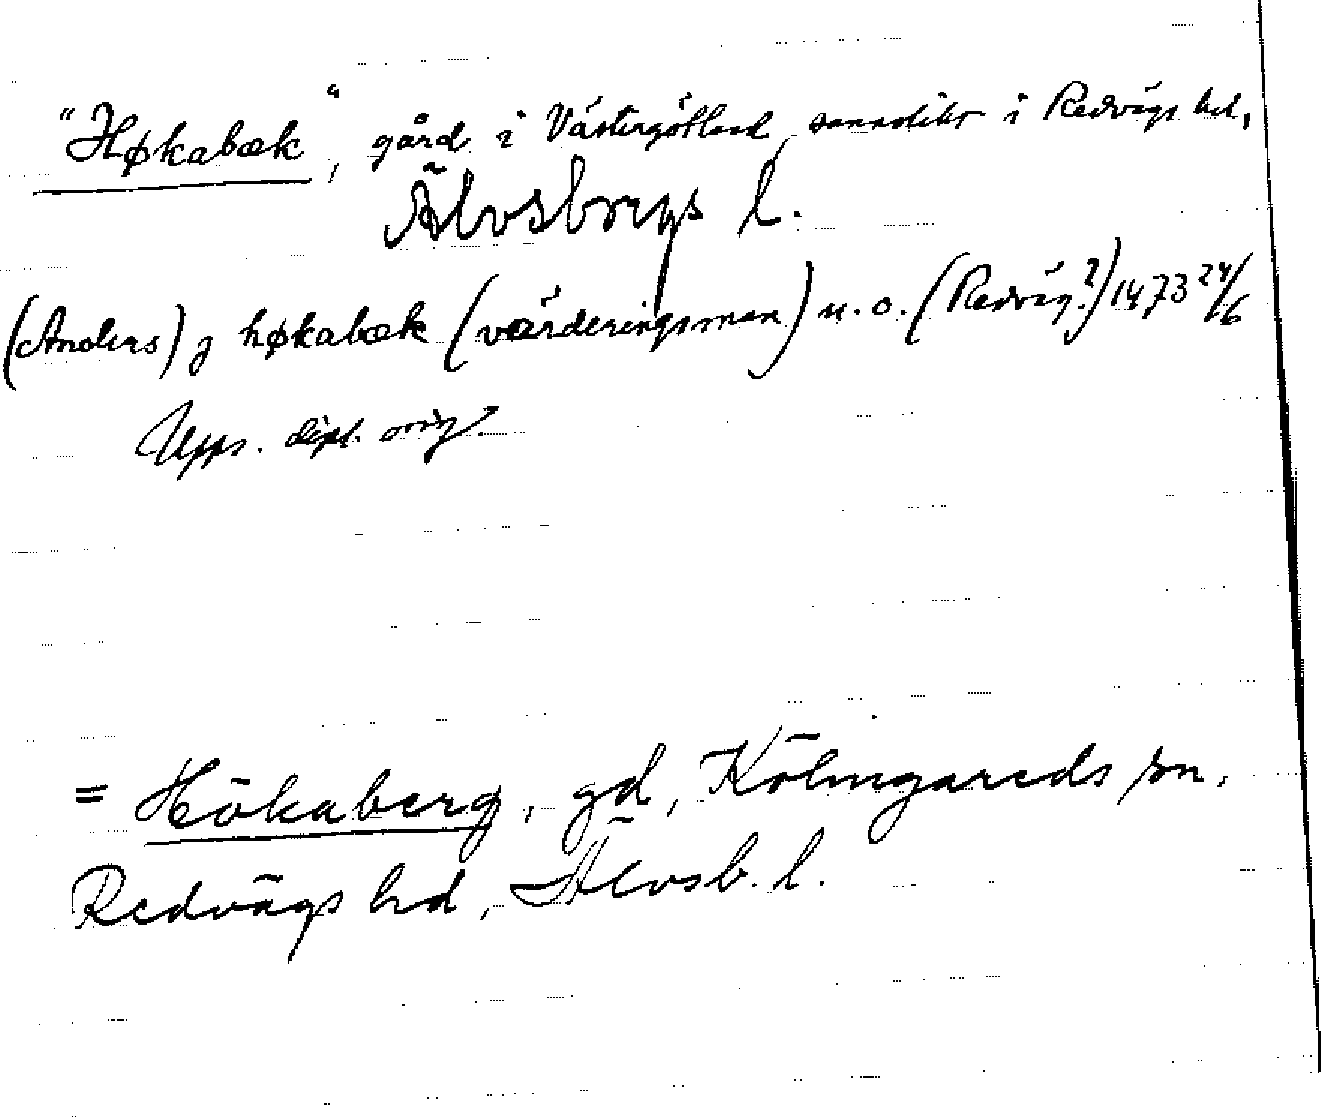 "Høkabæk", gård i Västergötland, sannolikt i Redvägs hd,
Älvsborgs l.
(Anders) j høkabæk (värderingsman) u. o. (Redväg?) 1473 24/6
Upps. dipl. orig.
= Hökaberg, gd, Kölingareds sn,
Redvägs hd, Älvsb. l.